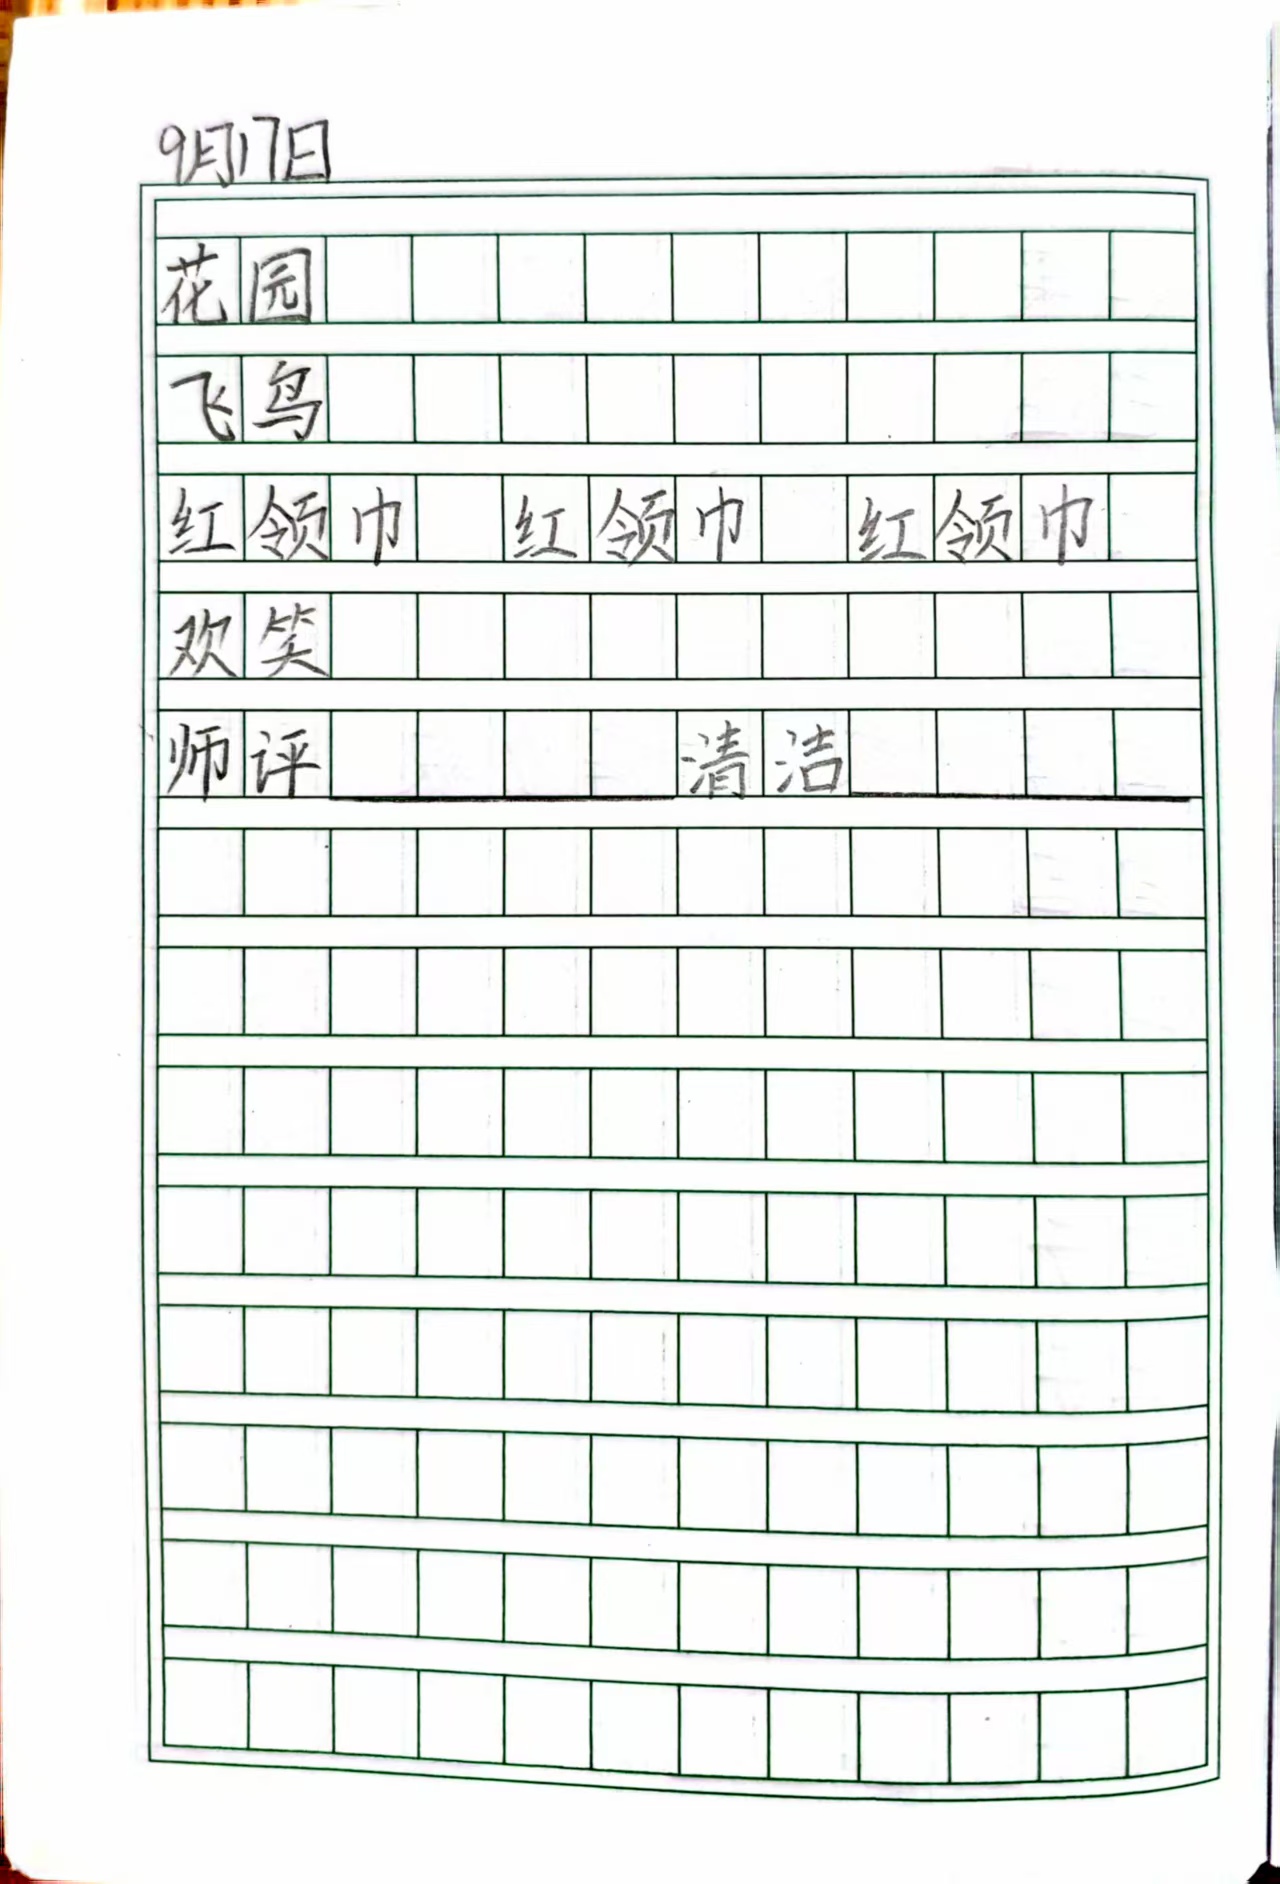 9月17日
花园
飞鸟
红领巾 红领巾 红领巾
欢笑
师评________清洁________